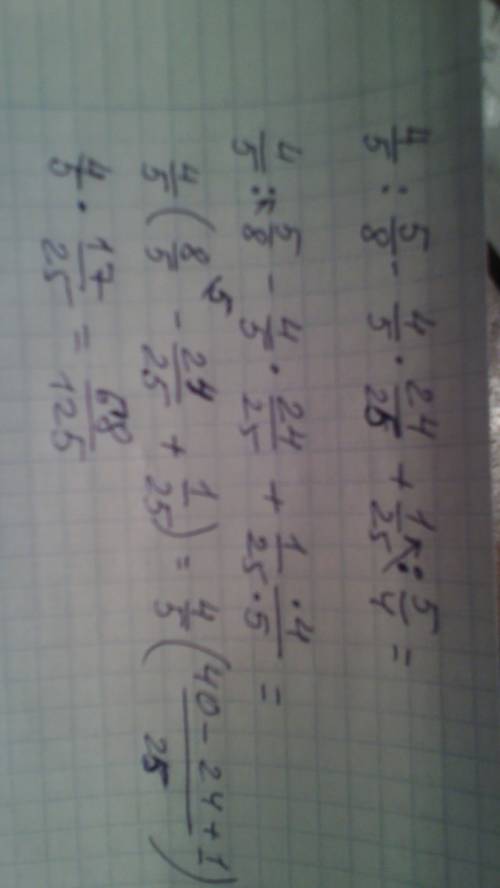 4/5 : 5/8 - 4/5 · 24/25 + 1/25 : 5/4 =
4/5 : 5/8 - 4/5 · 24/25 + 1·4/25·5 =
4/5 (8/5 \5 - 24/25 + 1/25) = 4/5 (40 - 24 + 1/25)
4/5 · 17/25 = 68/125